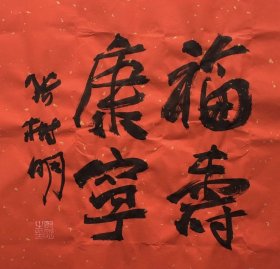 福壽
康寧
張樹明